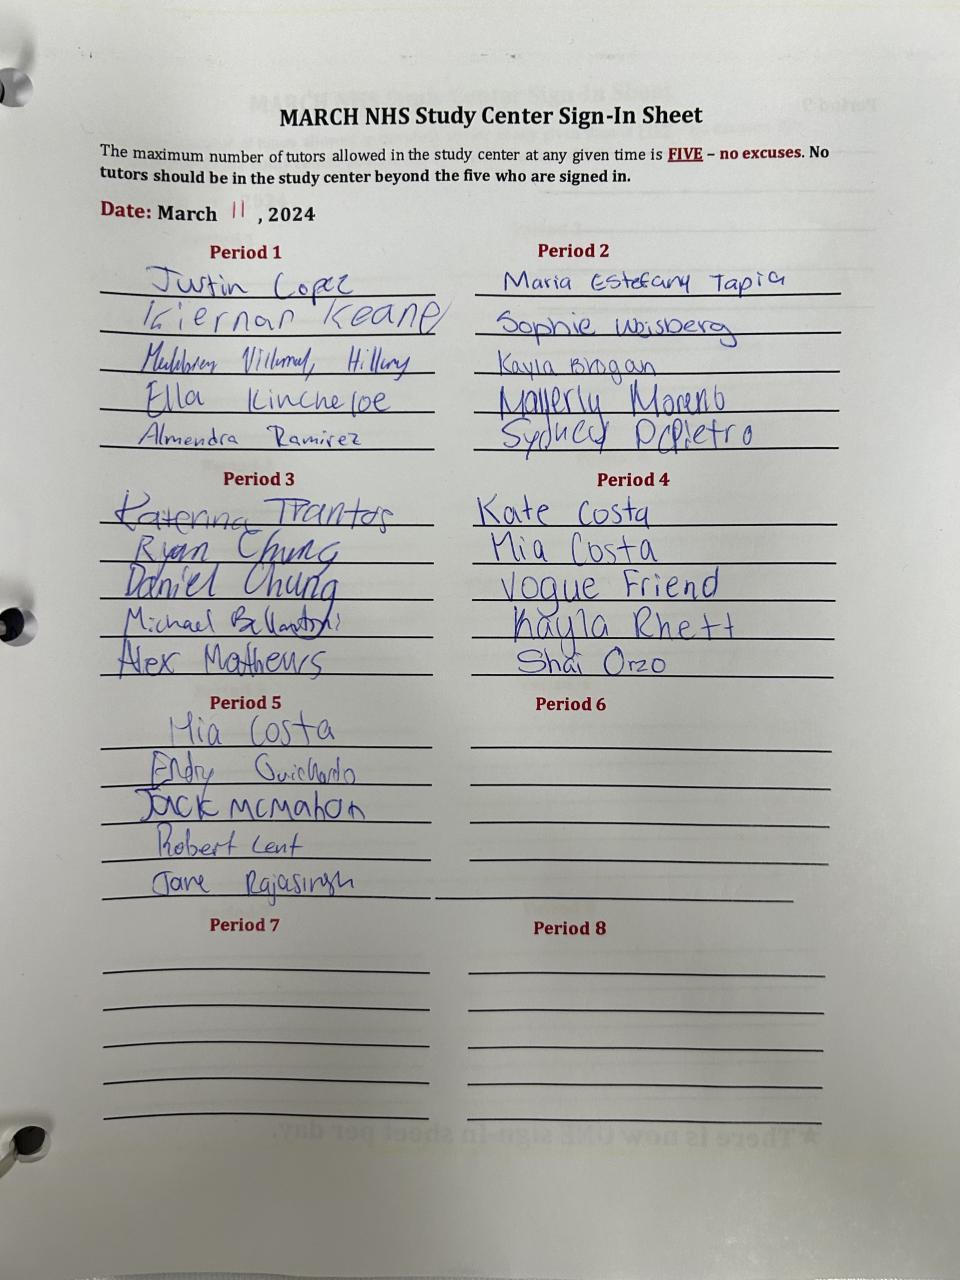 MARCH NHS Study Center Sign-In Sheet
The maximum number of tutors allowed in the study center at any given time is FIVE – no excuses. No
tutors should be in the study center beyond the five who are signed in.
Date: March 11, 2024
Period 1
Justin Lopez
Kiernan Keane
Villumul, Hillary
Ella Kincheloe
Almendra Ramirez
Period 2
Maria Estefany Tapia
Sophie Weisberg
Kayla Brogan
Mayerly Moreno
Sydney DePietro
Period 3
Katerina Trantos
Ryan Chung
Daniel Chung
Michael Bellantoni
Alex Mathews
Period 4
Kate Costa
Mia Costa
Vogue Friend
Kayla Rhett
Shai Orzo
Period 5
Mia Costa
Endry Guichardo
Jack McMahon
Robert Lent
Jane Rajasingh
Period 6
Period 7
Period 8